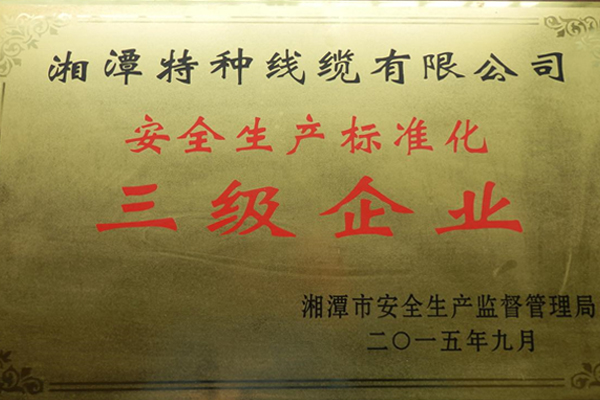 湘潭特种线缆有限公司
安全生产标准化
三级企业
湘潭市安全生产监督管理局
二〇一五年九月